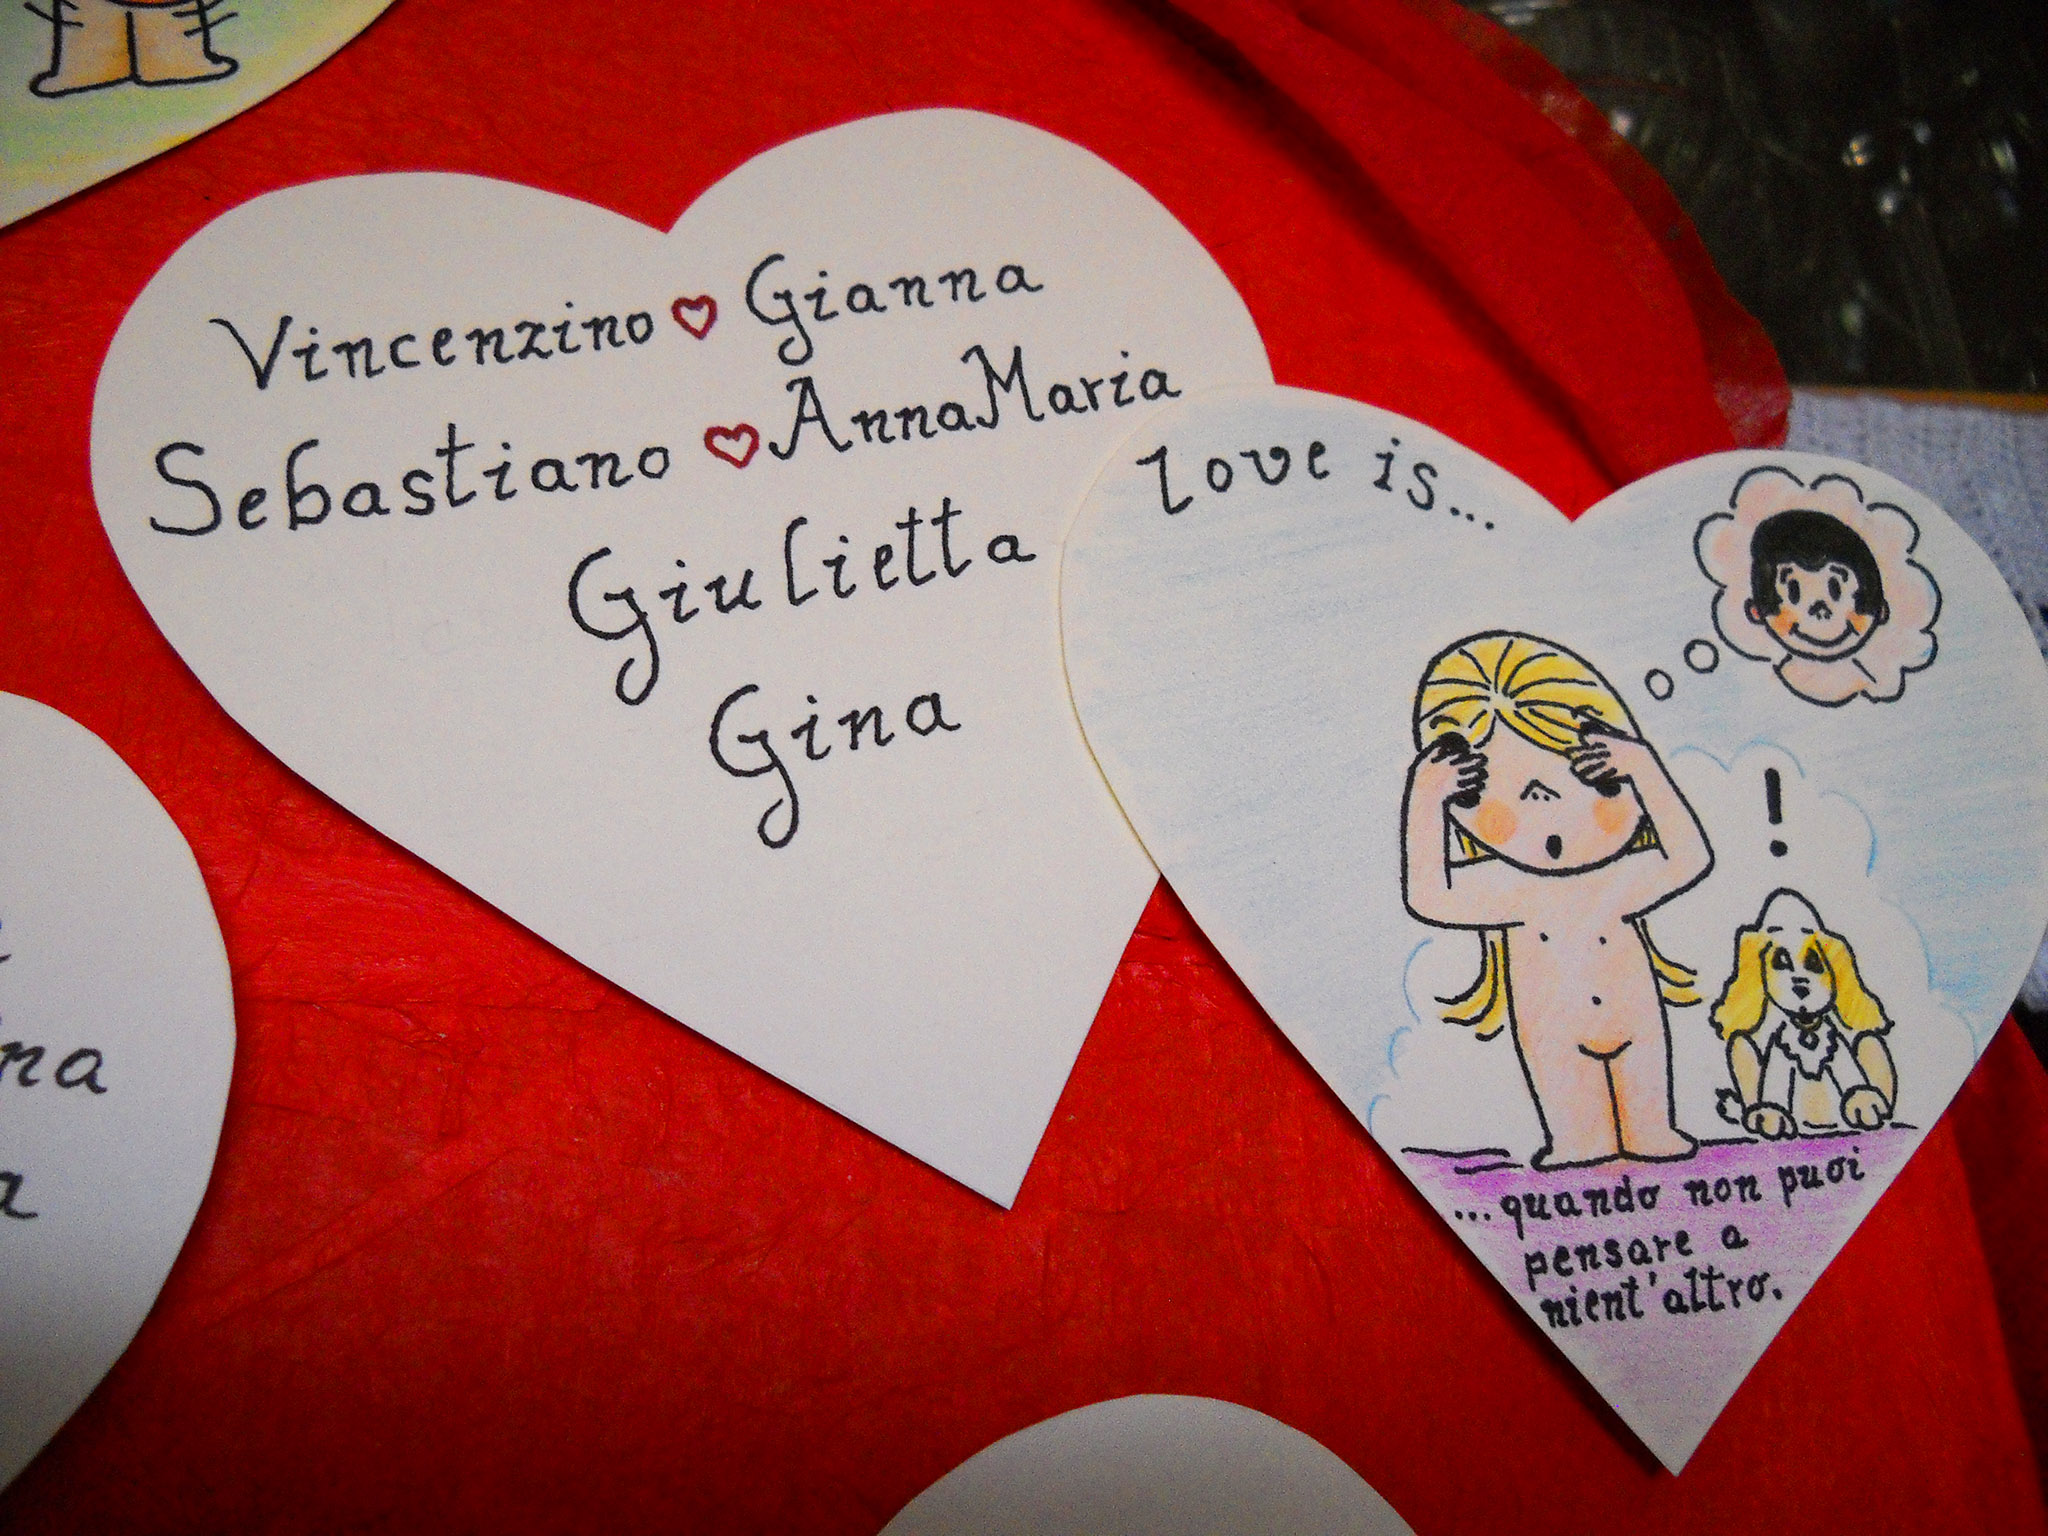 Vincenzino ♡ Gianna
Sebastiano ♡ AnnaMaria
Giulietta
Gina
love is...
!
...quando non puoi
pensare a
nient'altro.
na
a